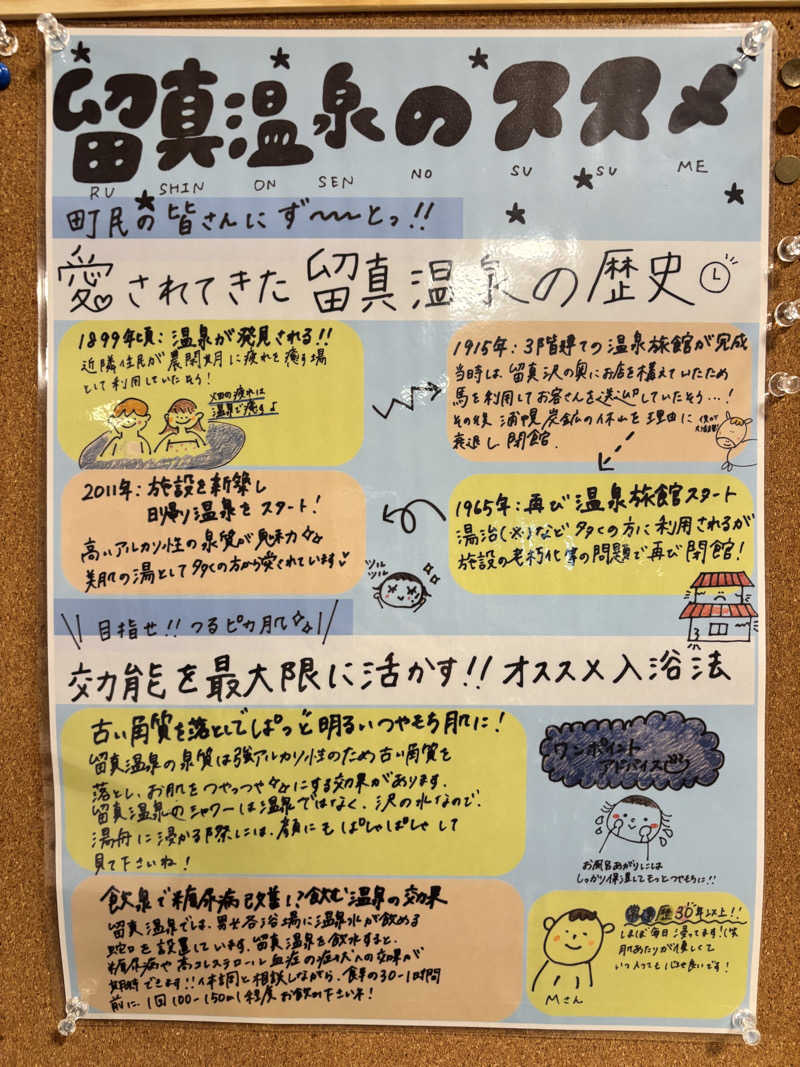 留真温泉のススメ
RU SHIN ON SEN NO SU SU ME
町民の皆さんにず〜〜っとっ!!
愛されてきた留真温泉の歴史
1899年頃:温泉が発見される!!
近隣住民が農閑期に疲れを癒す場
として利用していたそう!
畑の疲れは
温泉で癒す♪
1915年:3階建ての温泉旅館が完成
当時は、留真沢の奥にお店を構えていたため
馬を利用してお客さんを送迎していたそう…!
その後、浦幌炭鉱の休山を理由に
衰退し閉館.
1965年:再び温泉旅館スタート
湯治(※)など多くの方に利用されるが
施設の老朽化等の問題で再び閉館!
2011年:施設を新築し
日帰り温泉をスタート!
高いアルカリ性の泉質が魅力
美肌の湯として多くの方から愛されています♡
ツル
ツル
目指せ!!つるピカ肌
効能を最大限に活かす!!オススメ入浴法
古い角質を落としてぱっと明るいつやもち肌に!
留真温泉の泉質は強アルカリ性のため古い角質を
落とし、お肌をつやっつやにする効果があります.
留真温泉のシャワーは温泉ではなく、沢の水なので、
湯舟に浸かる際には、顔にもぱしゃぱしゃして
見て下さいね!
ワンポイント
アドバイス
お風呂あがりには
しっかり保湿してもっとつやもちに!!
飲泉で糖尿病改善!?飲む温泉の効果
留真温泉では、男女各浴場に温泉水が飲める
蛇口を設置しています.留真温泉を飲水すると、
糖尿病や高コレステロール血症の症状への効果が
期待できます!!体調と相談しながら、食事の30〜1時間
前に、1回100〜150ml程度お飲み下さいネ!
常連歴30年以上!!
ほぼ毎日湯ってます!(笑
肌あたりが優しくて
いつ入っても心地良いです!
Mさん